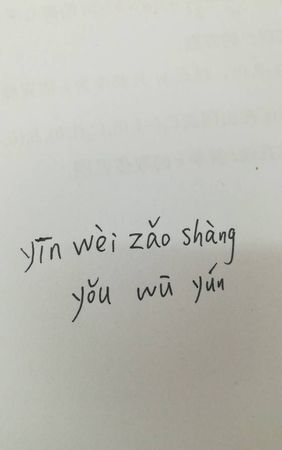 yīn wèi zǎo shàng
yǒu wū yún